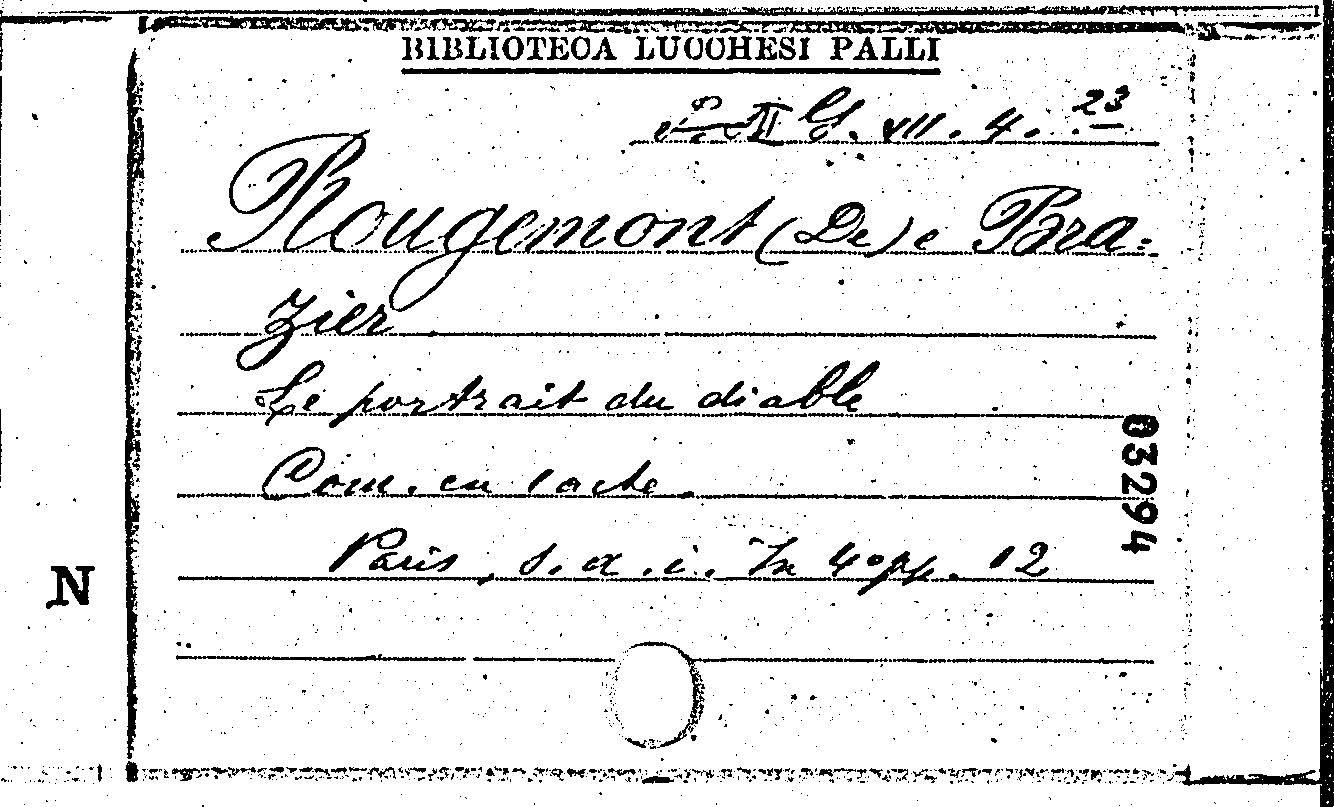 BIBLIOTECA LUCCHESI PALLI
G. VII. 4. 23
Rougemont (De) e Bra=
zier
Le portrait du diable
Com. en 1 acte.
Paris, s. a. i. In 4° pp. 12
03294
N